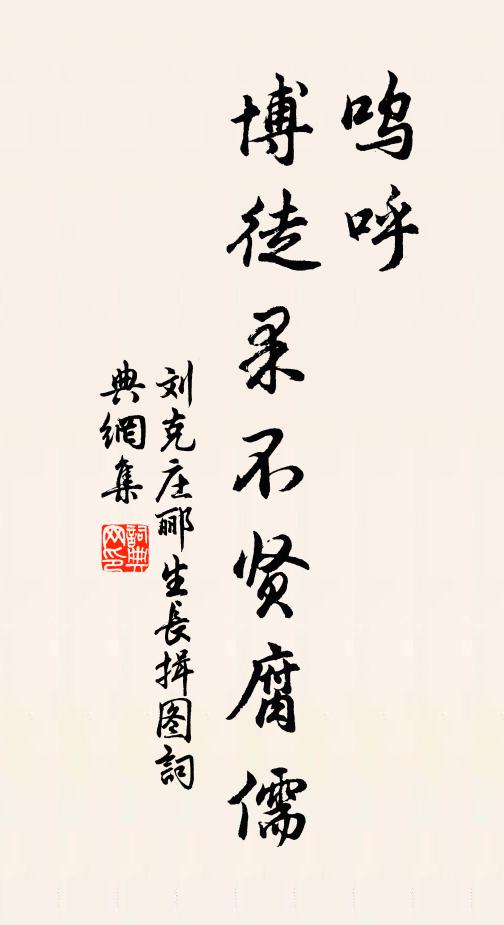 呜呼
博徒果不贤腐儒
刘克庄郦生長揖图詞
典網集
詞典网印